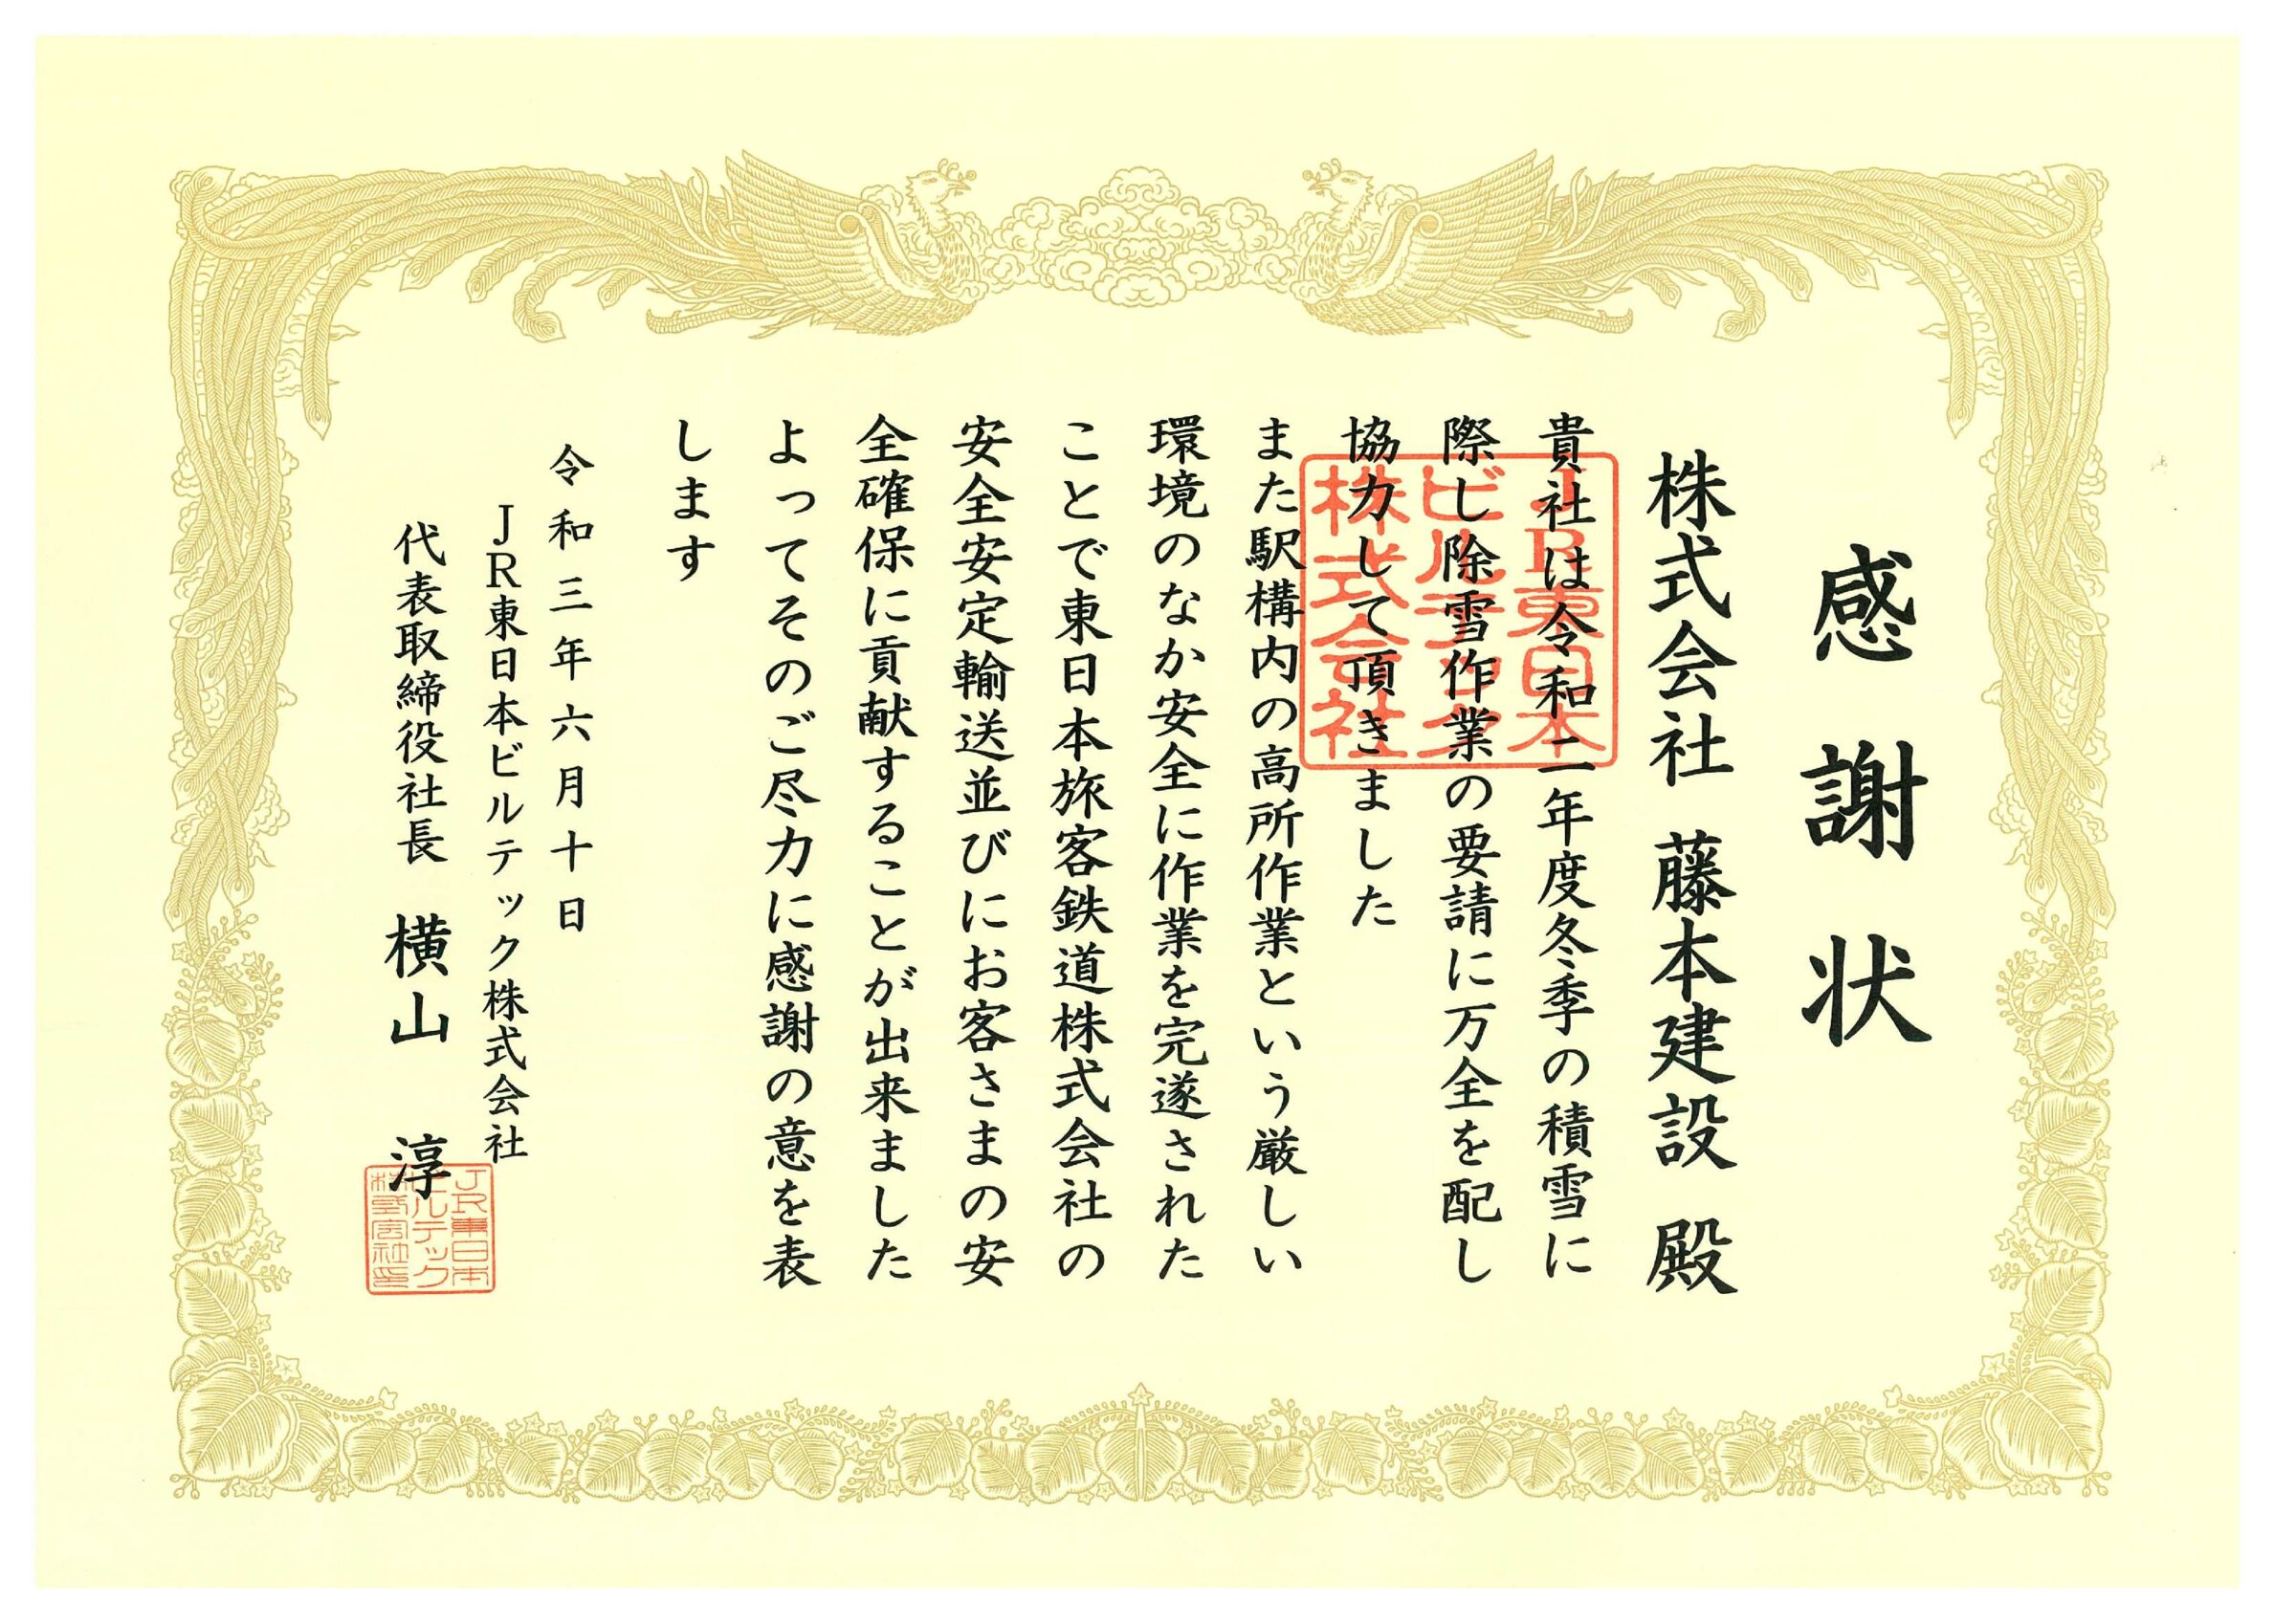 感謝状
株式会社 藤本建設 殿
貴社は令和二年度冬季の積雪に
際し除雪作業の要請に万全を配し
協力して頂きました
また駅構内の高所作業という厳しい
環境のなか安全に作業を完遂された
ことで東日本旅客鉄道株式会社の
安全安定輸送並びにお客さまの安
全確保に貢献することが出来ました
よってそのご尽力に感謝の意を表
します
令和三年六月十日
JR東日本ビルテック株式会社
代表取締役社長 横山 淳
JR東日本
ビルテック
株式会社
JR東日本
ビルテック
株式会社印